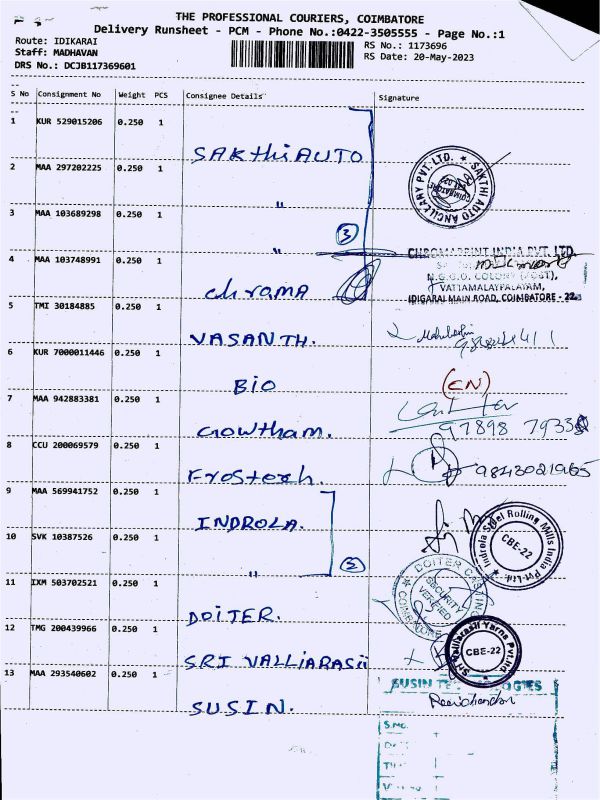 THE PROFESSIONAL COURIERS, COIMBATORE
Delivery Runsheet - PCM - Phone No.:0422-3505555 - Page No.:1
Route: IDIKARAI
Staff: MADHAVAN
DRS No.: DCJB117369601
RS No.: 1173696
RS Date: 20-May-2023
S No Consignment No Weight PCS Consignee Details Signature
1 KUR 529015206 0.250 1
SAKthi AUTO
2 MAA 297202225 0.250 1
"
3 MAA 103689298 0.250 1
"
3
SAKTHI AUTO ANCILLARY PVT. LTD.
COIMBATORE
4 MAA 103748991 0.250 1
chroma
CHROMAPRINT INDIA PVT. LTD.
N.G.G.O. COLONY (POST),
VATTAMALAYPALAYAM,
IDIGARAI MAIN ROAD, COIMBATORE - 22.
5 TMI 30184885 0.250 1
VASANTH.
6 KUR 7000011446 0.250 1
BIO
(CN)
7 MAA 942883381 0.250 1
Gowtham.
97898 7933
8 CCU 200069579 0.250 1
Frostech.
9843021965
9 MAA 569941752 0.250 1
INDROLA.
10 SVK 10387526 0.250 1
"
2
Indrola Steel Rolling Mills India Pvt. Ltd.
CBE-22
11 IXM 503702521 0.250 1
DOITER.
DOITER CASTING
SECURITY
VERIFIED
COIMBATORE
12 TMG 200439966 0.250 1
SRI VALLIARASII
Sri Valliarasii Yarns Pvt.Ltd
CBE-22
13 MAA 293540602 0.250 1
SUSIN.
SUSIN
Ravichandran
S.No.